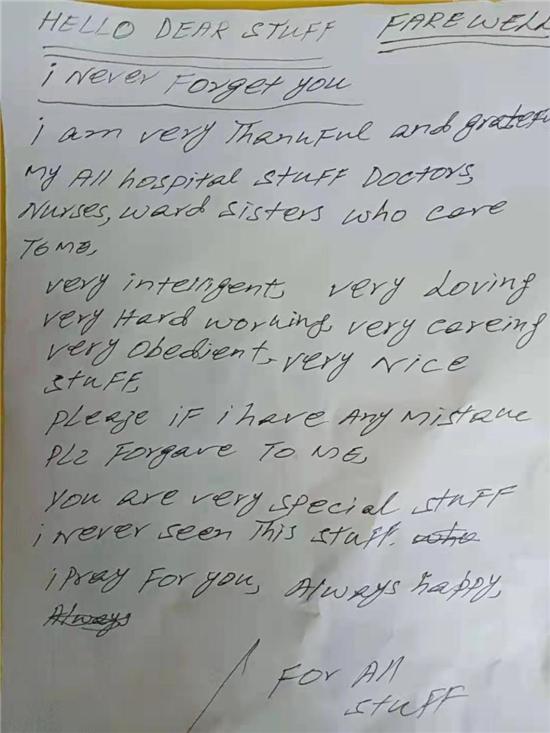 HELLO DEAR STUFF FAREWELL
i Never Forget you
i am very Thankful and gratefu
My All hospital stuff Doctors,
Nurses, ward sisters who care
To me,
very intelligent, very Loving
very Hard working, very careing
very Obedient, very Nice
stuff,
please if i have Any mistake
plz Forgave To me,
you are very special stuff
i never seen This stuff.
i pray For you, Always happy,
Always
For All
stuff